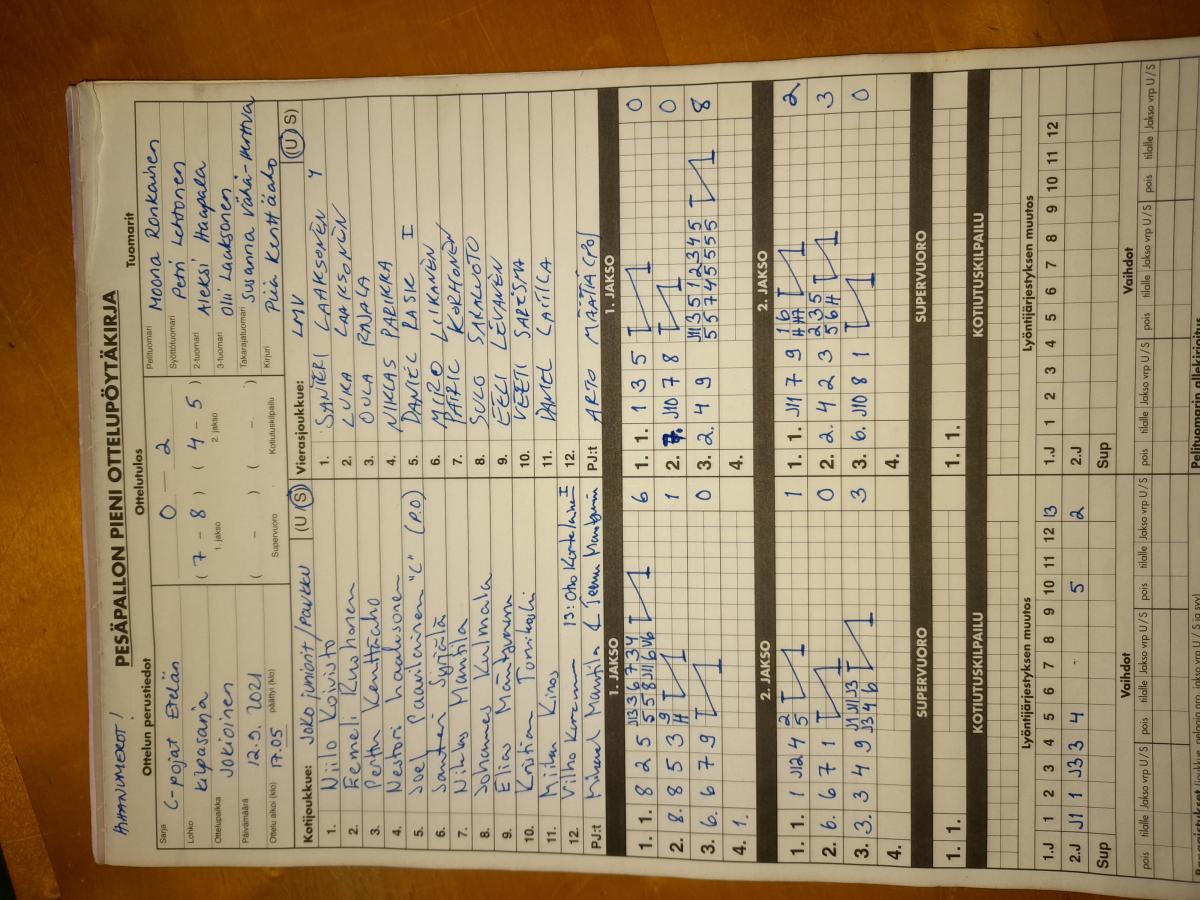 HIHANUMEROT!
PESÄPALLON PIENI OTTELUPÖYTÄKIRJA
Ottelun perustiedot
Sarja C-pojat Etelän
Lohko kilpasarja
Ottelupaikka Jokioinen
Päivämäärä 12.9. 2021
Ottelu alkoi (klo) 17.05 päättyi (klo)
Ottelutulos
0 - 2
( 7 - 8 ) ( 4 - 5 )
1. jakso 2. jakso
( - ) ( - )
Supervuoro Kotiutuskilpailu
Tuomarit
Pelituomari Moona Ronkainen
Syöttötuomari Petri Lehtonen
2-tuomari Aleksi Haapala
3-tuomari Olli Laaksonen
Takarajatuomari Susanna Vähä-Herttua
Kirjuri Piia Kenttäaho
Kotijoukkue: Joko Juniorit / PaukKu (U S)
1. Niilo Koivisto
2. Eemeli Ruohonen
3. Perttu Kenttäaho
4. Nestori Laaksonen
5. Joel Paavilainen "C" (P.O)
6. Santeri Syrjälä
7. Niklas Manttila
8. Johannes Kulmala
9. Elias Mäntyvaara
10. Kristian Tornikoski
11. Miika Kinos
12. Vilho 13: Otto
PJ:t Mikael Manttila & Teemu
Vierasjoukkue: LMV (U S)
1. SANTERI LAAKSONEN Y
2. LUKA LAAKSONEN
3. OULA RAJALA
4. NIKLAS PARIKKA
5. DANIEL RASK I
6. MIRO LIIKANEN
7. PATRIC KORHONEN
8. SULO SAKALUOTO
9. EELI LEVANEN
10. VEETI SARESMA
11. DANIEL LAITILA
12.
PJ:t ARTO MÄÄTTÄ (PO)
1. JAKSO
1. 1. 8 2 5 J13 3 6 7 3 4 6
5 5 8 J11 6 V6
2. 8. 8 5 3 9 1
H
3. 6. 6 7 9 0
4. 1.
1. JAKSO
1. 1. 1 3 5 0
2. J10 7 8 0
3. 2. 4 9 J11 3 5 1 2 3 4 5 8
5 5 7 4 5 5 5 5
4.
2. JAKSO
1. 1. 1 J12 4 2 1
5
2. 6. 6 7 1 0
3. 3. 3 4 9 J1 J11 J3 3
J13 4 6
4.
2. JAKSO
1. 1. J11 7 9 1 6 2
H H
2. 2. 4 2 3 2 3 5 3
5 6 H
3. 6. J10 8 1 0
4.
SUPERVUORO
1. 1.
SUPERVUORO
1. 1.
KOTIUTUSKILPAILU
KOTIUTUSKILPAILU
Lyöntijärjestyksen muutos
1.J 1 2 3 4 5 6 7 8 9 10 11 12 13
2.J J1 1 J3 3 4 5 2
Sup
Lyöntijärjestyksen muutos
1.J 1 2 3 4 5 6 7 8 9 10 11 12
2.J
Sup
Vaihdot
pois tilalle Jakso vrp U / S pois tilalle Jakso vrp U / S pois tilalle Jakso vrp U / S
Vaihdot
pois tilalle Jakso vrp U / S pois tilalle Jakso vrp U / S pois tilalle Jakso vrp U / S